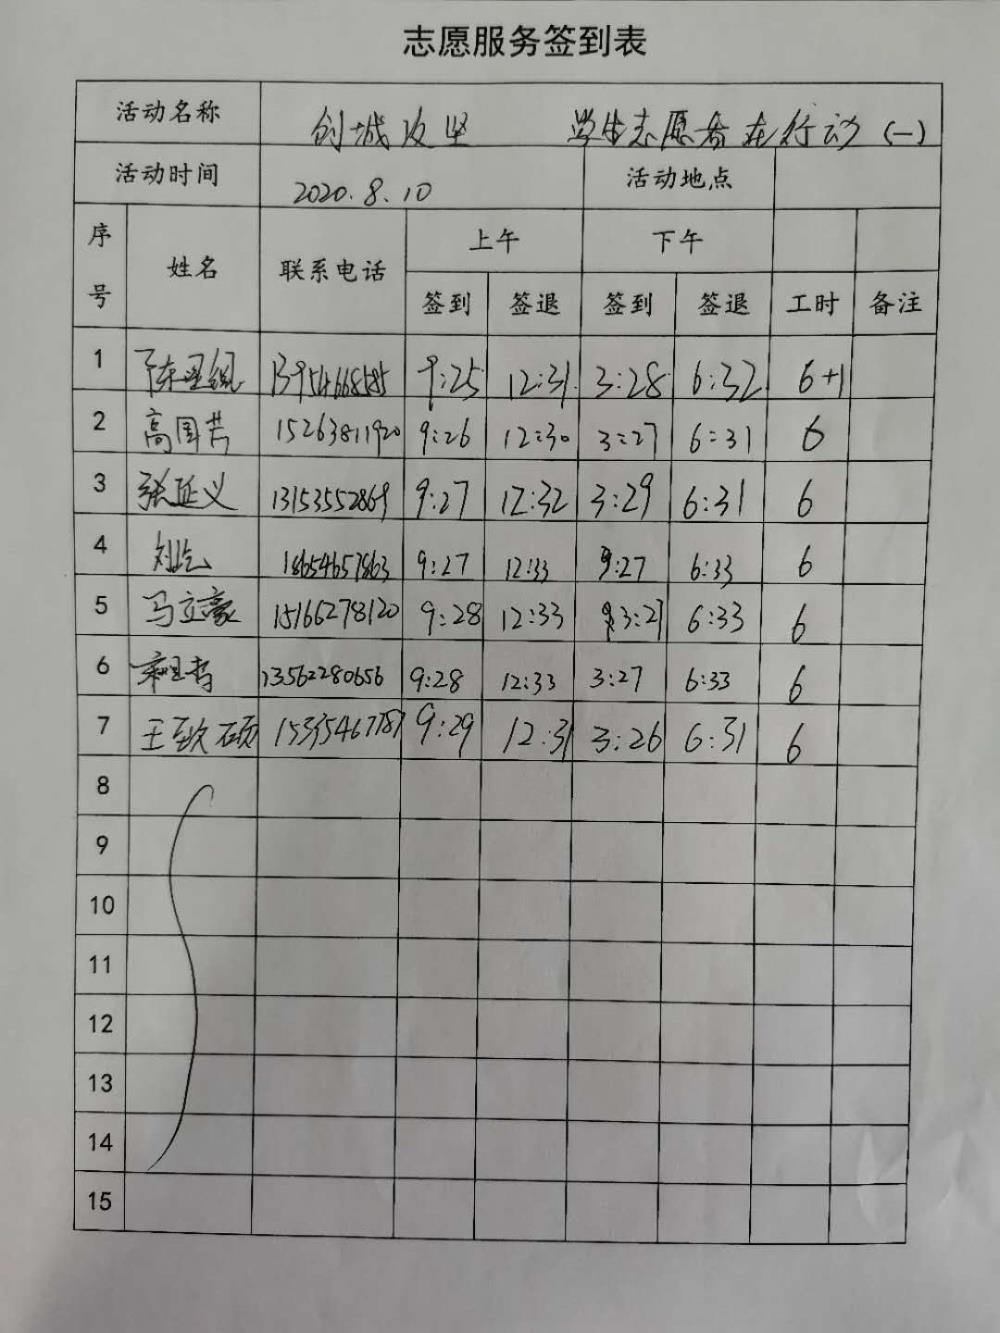 志愿服务签到表
活动名称 创城攻坚 学生志愿者在行动(一)
活动时间 2020.8.10 活动地点
序号 姓名 联系电话 上午 下午
签到 签退 签到 签退 工时 备注
1 陈 13954668585 9:25 12:31 3:28 6:32 6+1
2 高国芸 15263811920 9:26 12:30 3:27 6:31 6
3 张延义 13153552869 9:27 12:32 3:29 6:31 6
4 刘屹 18654657863 9:27 12:33 9:27 6:33 6
5 马立豪 15166278120 9:28 12:33 3:27 6:33 6
6 13562280656 9:28 12:33 3:27 6:33 6
7 王 硕 9:29 12:31 3:26 6:31 6
8
9
10
11
12
13
14
15